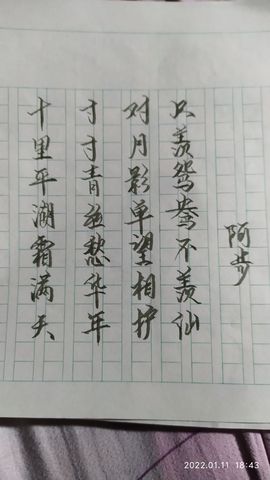 十里平湖霜满天
寸寸青丝愁华年
对月影单望相护
只羡鸳鸯不羡仙
阿步
2022.01.11 18:43